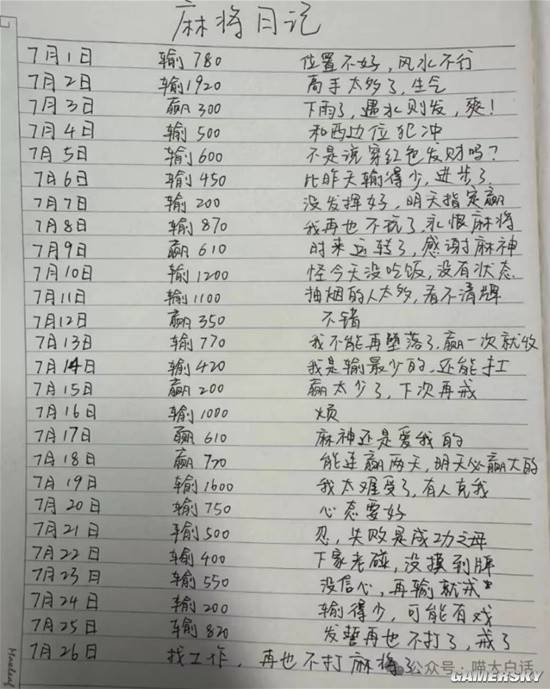 麻将日记
7月1日 输780 位置不好，风水不行
7月2日 输1920 高手太多了，生气
7月3日 赢300 下雨了，遇水则发，爽！
7月4日 输500 和西边位犯冲
7月5日 输600 不是说穿红色发财吗？
7月6日 输450 比昨天输得少，进步了
7月7日 输200 没发挥好，明天指定赢
7月8日 输870 我再也不玩了，永恨麻将
7月9日 赢610 时来运转了，感谢麻神
7月10日 输1200 怪今天没吃饭，没有状态
7月11日 输1100 抽烟的人太多，看不清牌
7月12日 赢350 不错
7月13日 输770 我不能再堕落了，赢一次就收
7月14日 输420 我是输最少的，还能扛
7月15日 赢200 赢太少了，下次再戒
7月16日 输1000 烦
7月17日 赢610 麻神还是爱我的
7月18日 赢720 能连赢两天，明天必赢大的
7月19日 输1600 我太难受了，有人克我
7月20日 输750 心态要好
7月21日 输500 忍，失败是成功之母
7月22日 输400 下家老碰，没摸到牌
7月23日 输550 没信心，再输就戒
7月24日 输200 输得少，可能有戏
7月25日 输820 发誓再也不打了，戒了
7月26日 找工作，再也不打麻将了
公众号·喵大白话
GAMERSKY